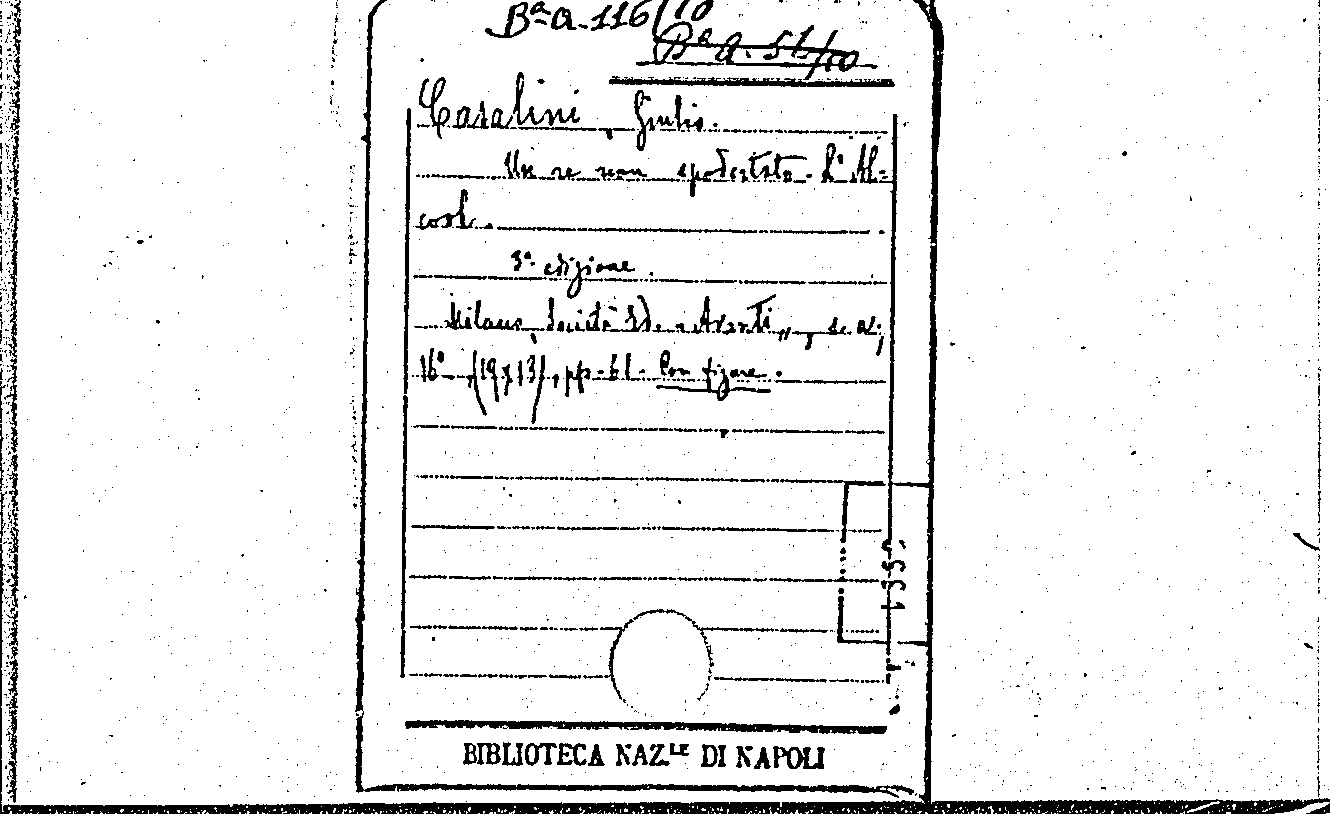 Bª a. 116/10
Bª a. 51/10
Casalini, Giulio.
Un re non spodestato. L'Al=
cool.
3ª edizione.
Milano, Società Ed. "Avanti,,, s. a.,
16°, (19x13), pp. 61. Con figure.
BIBLIOTECA NAZ.LE DI NAPOLI